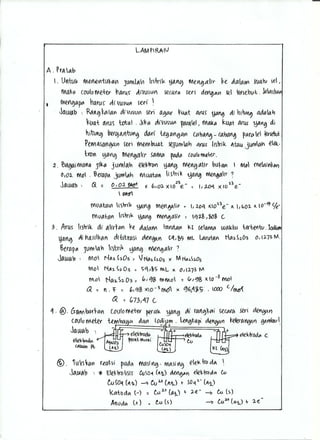 LAMPIRAN
A. Pralab
1. Untuk menentukan jumlah listrik yang mengalir ke dalam suatu sel,
maka coulometer harus disusun secara seri dengan sel tersebut. Jelaskan
mengapa harus disusun seri ?
Jawab : Rangkaian disusun seri agar kuat arus yang di hitung adalah
kuat arus total. Jika disusun paralel, maka kuat arus yang di
hitung bergantung dari tegangan cabang-cabang paralel tersebut
Pemasangan seri membuat sejumlah arus listrik atau jumlah elek-
tron yang mengalir sama pada coulometer.
2. Bagaimana jika jumlah elektron yang mengalir bukan 1 mol melainkan
0,02 mol. Berapa jumlah muatan listrik yang mengalir ?
Jawab : Q = 0,02 mol x 6,02 x 10²³ e⁻ = 1,204 x 10²² e⁻
1 mol
muatan listrik yang mengalir = 1,204 x 10²² e⁻ x 1,602 x 10⁻¹⁹ C/e⁻
muatan listrik yang mengalir = 1928,808 C
3. Arus listrik di alirkan ke dalam larutan KI selama waktu tertentu. Iodium
yang di hasilkan dititrasi dengan 54,85 mL larutan Na₂S₂O₃ 0,1273 M.
Berapa jumlah listrik yang mengalir ?
Jawab : mol Na₂S₂O₃ = V Na₂S₂O₃ x M Na₂S₂O₃
mol Na₂S₂O₃ = 54,85 mL x 0,1273 M
mol Na₂S₂O₃ = 6,98 mmol = 6,98 x 10⁻³ mol
Q = n . F = 6,98 x 10⁻³ mol x 96,485 . 1000 C/mol
Q = 673,47 C
4. (a). Gambarkan Coulometer perak yang di rangkai secara seri dengan
coulometer tembaga dan iodium. Lengkapi dengan keterangan gambar!
Jawab :
elektroda
perak murni
elektroda
Cu
elektroda C
elektroda
AgNO₃
(aq)
CuSO₄
(aq)
KI (aq)
(b). Tuliskan reaksi pada masing-masing elektroda !
Jawab : * Elektrolisis CuSO₄ (aq) dengan elektroda Cu
CuSO₄ (aq) → Cu²⁺ (aq) + SO₄²⁻ (aq)
Katoda (-) = Cu²⁺ (aq) + 2e⁻ → Cu (s)
Anoda (+) = Cu (s) → Cu²⁺ (aq) + 2e⁻